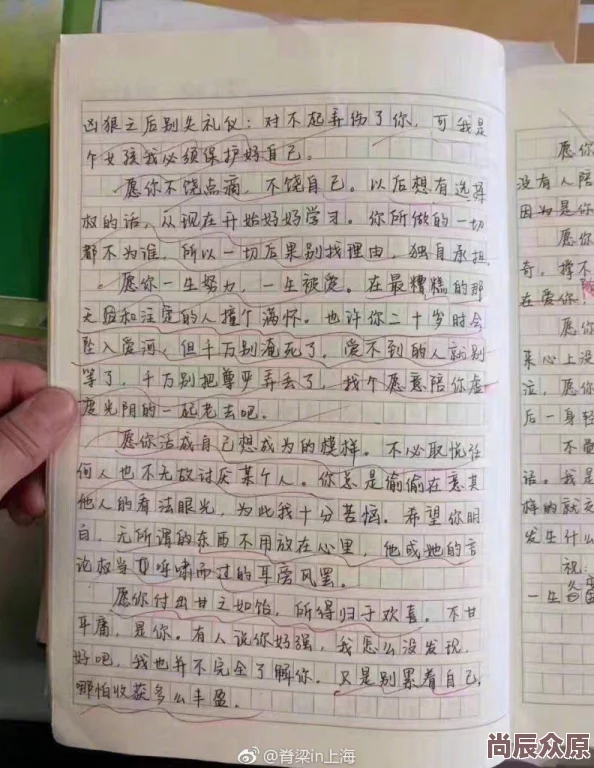 凶狠之后别失礼仪：对不起弄伤了你，可我是
个女孩我必须保护好自己。
愿你不饶点滴，不饶自己。以后想有选择
权的话，从现在开始好好学习。你所做的一切
都不为谁，所以一切后果别找理由，独自承担。
愿你一生努力，一生被爱。在最糟糕的那
天益和注定的人撞个满怀。也许你二十岁时会
坠入爱河，但千万别淹死了，爱不到的人就别
等了，千万别把尊严弄丢了，找个愿意陪你虚
度光阴的一起老去吧。
愿你活成自己想成为的模样。不必取悦任
何人也不无故讨厌某个人。你总是偷偷在意其
他人的看法眼光，为此我十分苦恼。希望你明
白，无所谓的东西不用放在心里，他或她的言
论权当呼啸而过的耳旁风罢。
愿你付出甘之如饴，所得归于欢喜。不甘
平庸，是你。有人说你好强，我怎么没发现，
好吧，我也并不完全了解你。只是别累着自己，
哪怕收获多么丰盈。
愿你
没有人陪
因为是你
愿你
奇，撑不
在爱你！
愿你
来心上没
泣，愿你
后一身轻
不要
话。我是
样的就充
发生什么
祝：
一生
@脊梁in上海
尚辰众原